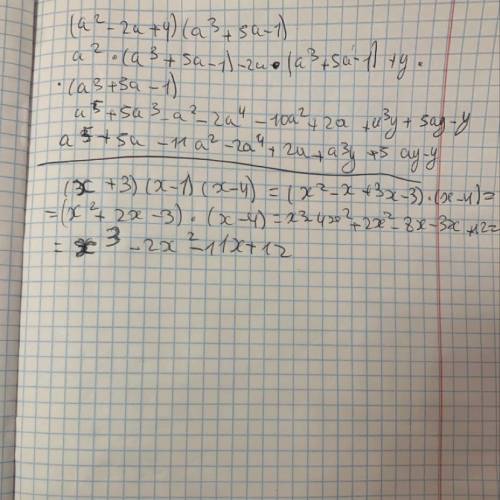 (a² - 2a + y) (a³ + 5a - 1)
a² · (a³ + 5a - 1) - 2a · (a³ + 5a - 1) + y ·
· (a³ + 5a - 1)
a⁵ + 5a³ - a² - 2a⁴ - 10a² + 2a + a³y + 5ay - y
a⁵ + 5a - 11a² - 2a⁴ + 2a + a³y + 5 ay - y
(x + 3) (x - 1) (x - 4) = (x² - x + 3x - 3) · (x - 4) =
= (x² + 2x - 3) · (x - 4) = x³ - 4x² + 2x² - 8x - 3x + 12 =
= x³ - 2x² - 11x + 12